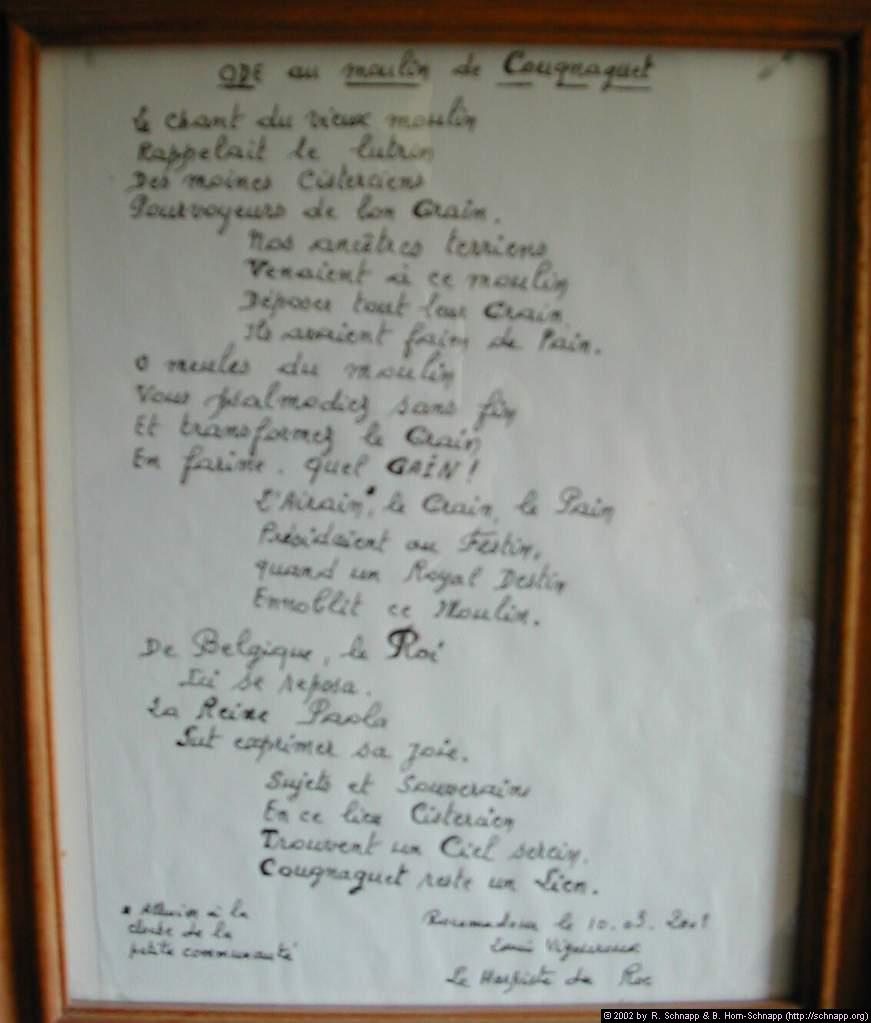 ODE au moulin de Cougnaguet
Le chant du vieux moulin
Rappelait le lutrin
Des moines Cisterciens
Pourvoyeurs de bon Grain.
Nos ancêtres terriens
Venaient à ce moulin
Déposer tout leur Grain,
Ils avaient faim de Pain.
O meules du moulin
Vous psalmodiez sans fin
Et transformez le Grain
En farine. quel GAIN!
L'Airain*, le Grain, le Pain
Présidaient au Festin,
quand un Royal Destin
Ennoblit ce Moulin.
De Belgique, le Roi
Ici se reposa.
La Reine Paola
Sut exprimer sa joie.
Sujets et Souverains
En ce lieu Cistercien
Trouvent un Ciel serein.
Cougnaguet reste un Lien.
* Allusion à la
cloche de la
petite communauté
Rocamadour le 10.03.2001
Louis Vigouroux
Le Harpiste du Roc
© 2002 by R. Schnapp & B. Horn-Schnapp (http://schnapp.org)